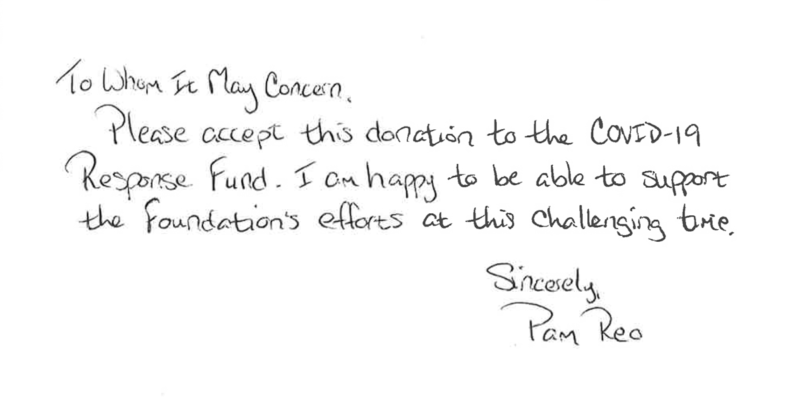 To Whom It May Concern,
Please accept this donation to the COVID-19
Response Fund. I am happy to be able to support
the Foundation's efforts at this challenging time.
Sincerely,
Pam Reo